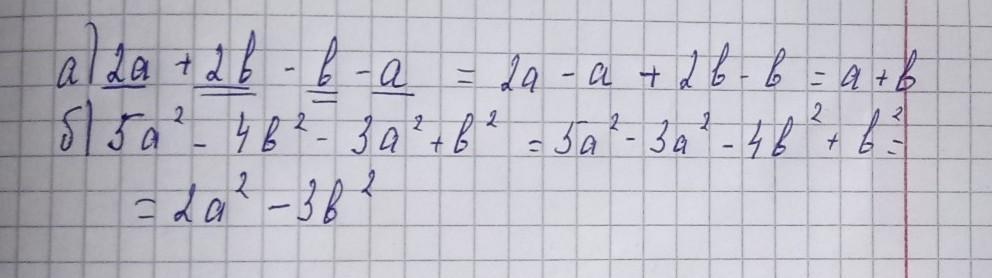 а) 2a + 2b - b - a = 2a - a + 2b - b = a + b
б) 5a² - 4b² - 3a² + b² = 5a² - 3a² - 4b² + b² =
= 2a² - 3b²